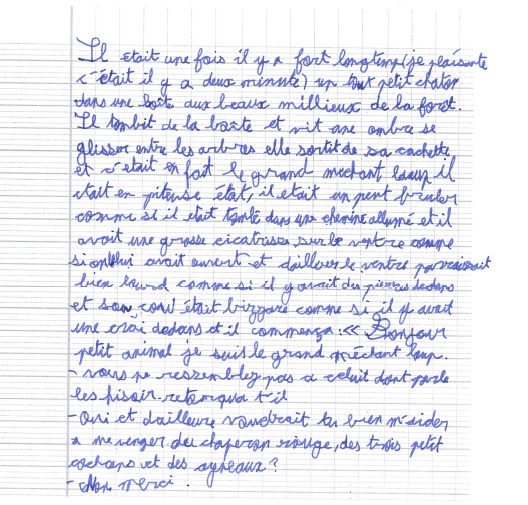 Il était une fois il y a fort longtemp (je plaisante
c'était il y a deux minute) un tout petit chaton
dans une boite aux beaux millieux de la foret.
Il tombit de la boite et vit une ombre se
glisser entre les arbres elle sortit de sa cachette
et c'était en fait le grand mechant loup il
était en piteuse état, il etait un peut bruler
comme si il etait tombé dans une cheminé allumé et il
avait une grosse cicatrisse sur le ventre comme
si on lui avait ouvert et dailleur le ventre paraissait
bien lourd comme si il y avait des pierres dedans
et son cou était bizzare comme si il y avait
une crai dedans et il commença : « Bonjour
petit animal je suis le grand méchant loup.
- vous ne ressemblez pas a celuit dont parle
les hisoir retorqua t'il
- Oui et dailleur voudrait tu bien m'aider
a me venger du chaperon rouge, des trois petit
cochons et des agneaux ?
- Non merci.